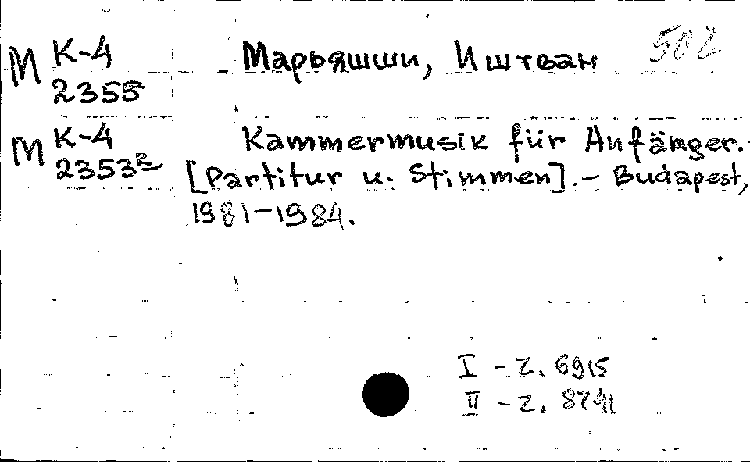 М К-4 Марьяшши, Иштван 502
2355
М К-4 Kammermusik für Anfänger.
2353² [Partitur u. Stimmen]. – Budapest,
1981–1984.
I - Z. 6915
II - Z. 8741